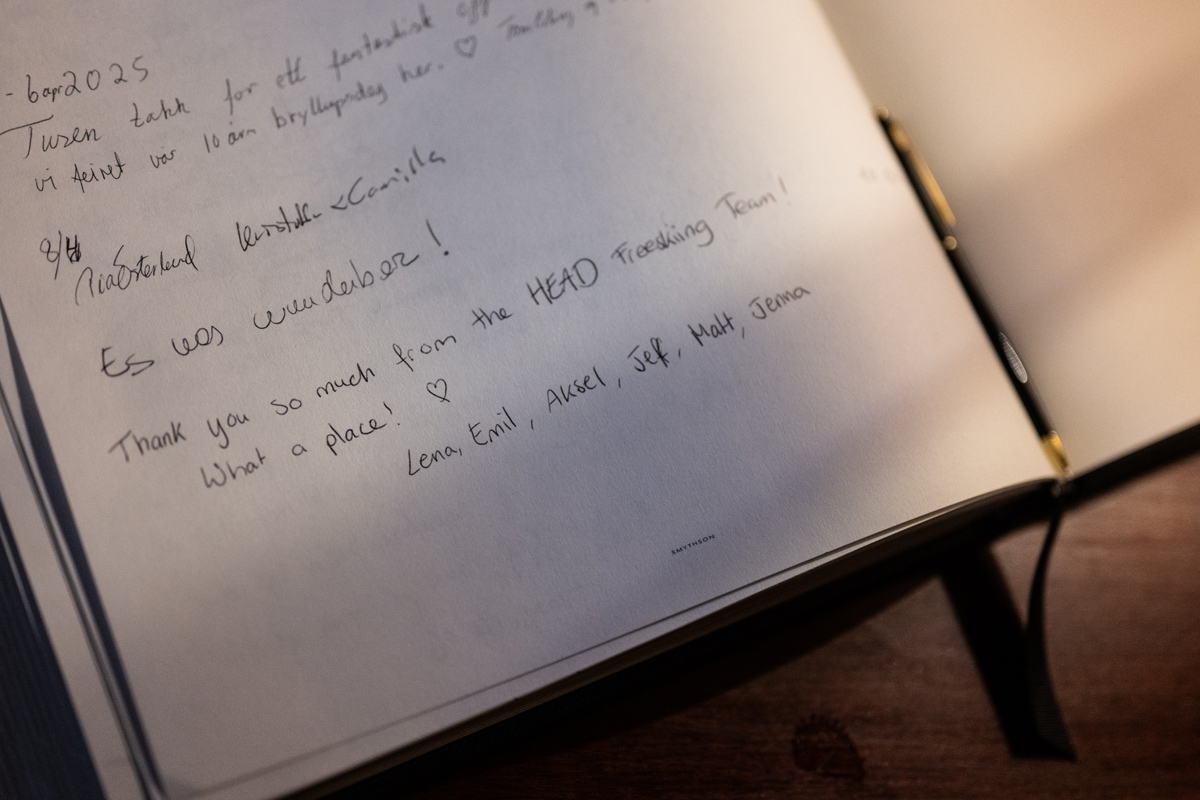 - 6apr2025
Tusen takk for ett fantastisk opp
vi feiret vår 10 års bryllupsdag her. ♡
8/4
Kristoffer & Camilla
Es was wunderbar!
Thank you so much from the HEAD Freeskiing Team!
What a place! ♡
Lena, Emil, Aksel, Jeff, Matt, Jenna
SMYTHSON